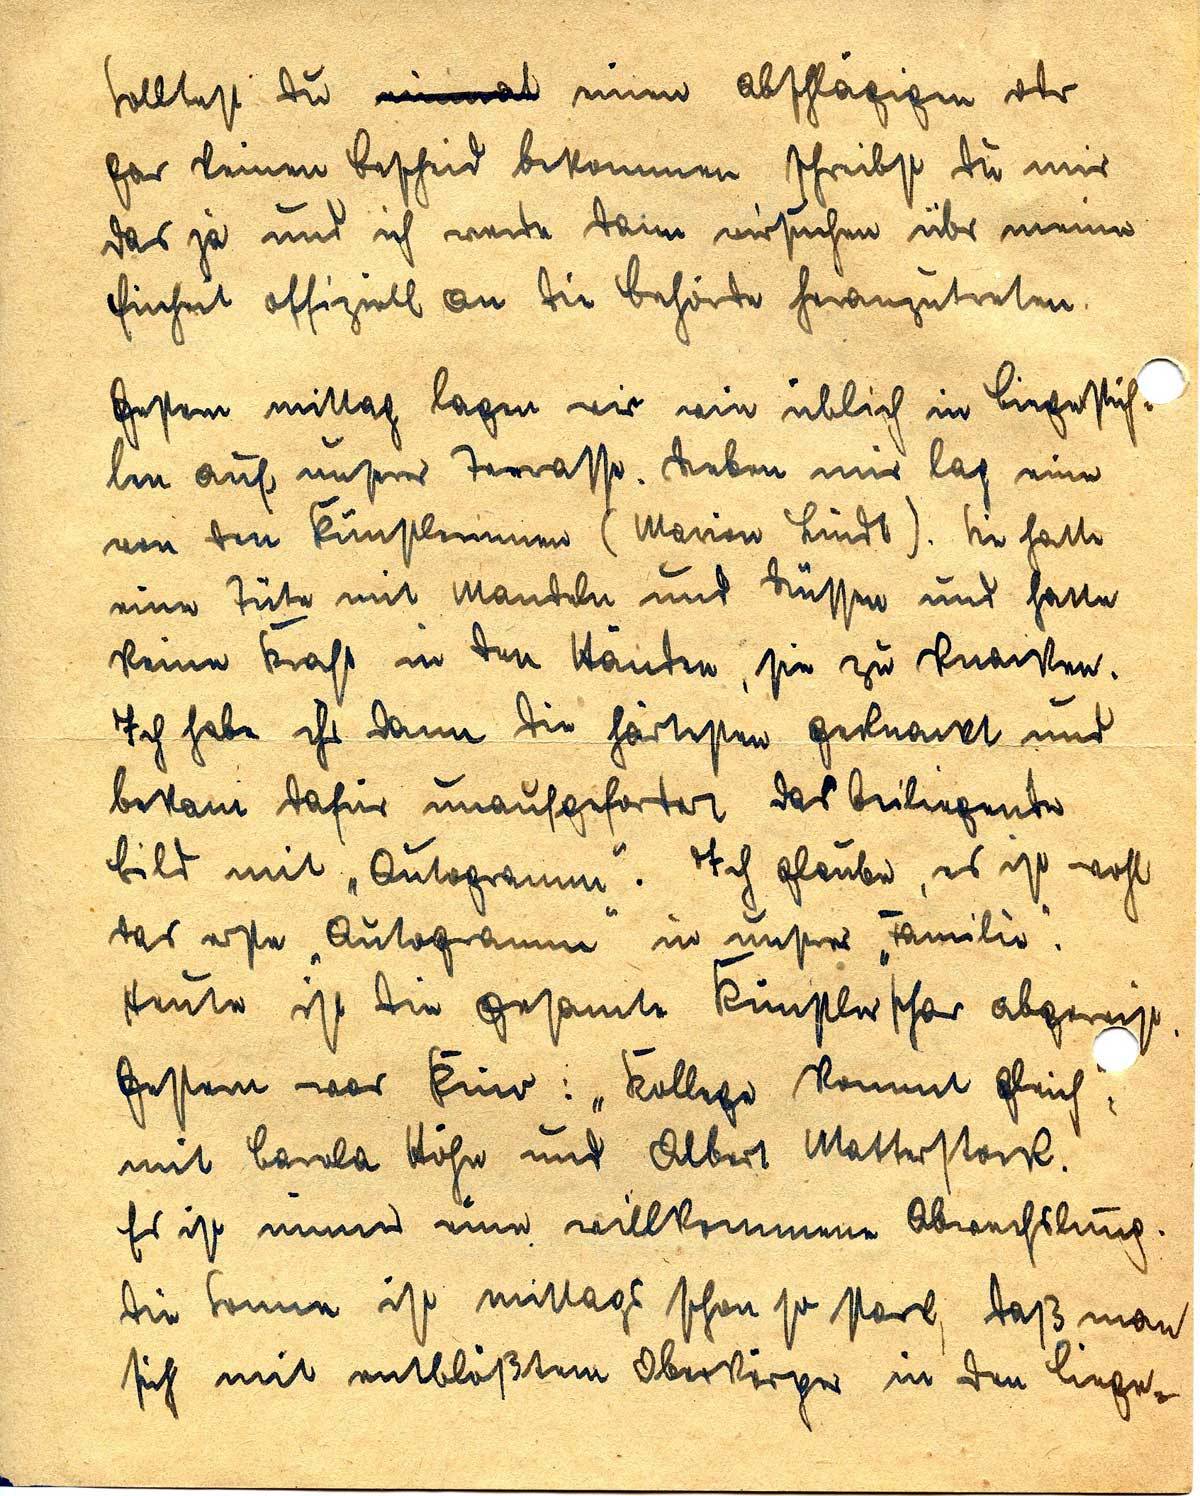 Solltest Du einmal einen abschlägigen oder
gar keinen Bescheid bekommen schreibst Du mir
das ja und ich werde dann versuchen über meine
Einheit offiziell an die Behörde heranzutreten.
Gestern mittag lagen wir wie üblich in Liegestüh-
len auf unserer Terrasse. Neben mir lag eine
von den Künstlerinnen (Marion Lindt). Sie hatte
eine Tüte mit Mandeln und Nüssen und hatte
keine Kraft in den Händen, sie zu knacken.
Ich habe ihr dann die härtesten geknackt und
bekam dafür unaufgefordert das beiliegende
Bild mit „Autogramm“. Ich glaube, es ist wohl
das erste „Autogramm“ in unserer „Familie“.
Heute ist die gesamte Künstlerschar abgereist.
Gestern war Kino: „Kollege kommt gleich“,
mit Carola Höhn und Albert Matterstock.
Es ist immer eine willkommene Abwechslung.
Die Sonne ist mittags schon so stark, daß man
sich mit entblößtem Oberkörper in den Liege-